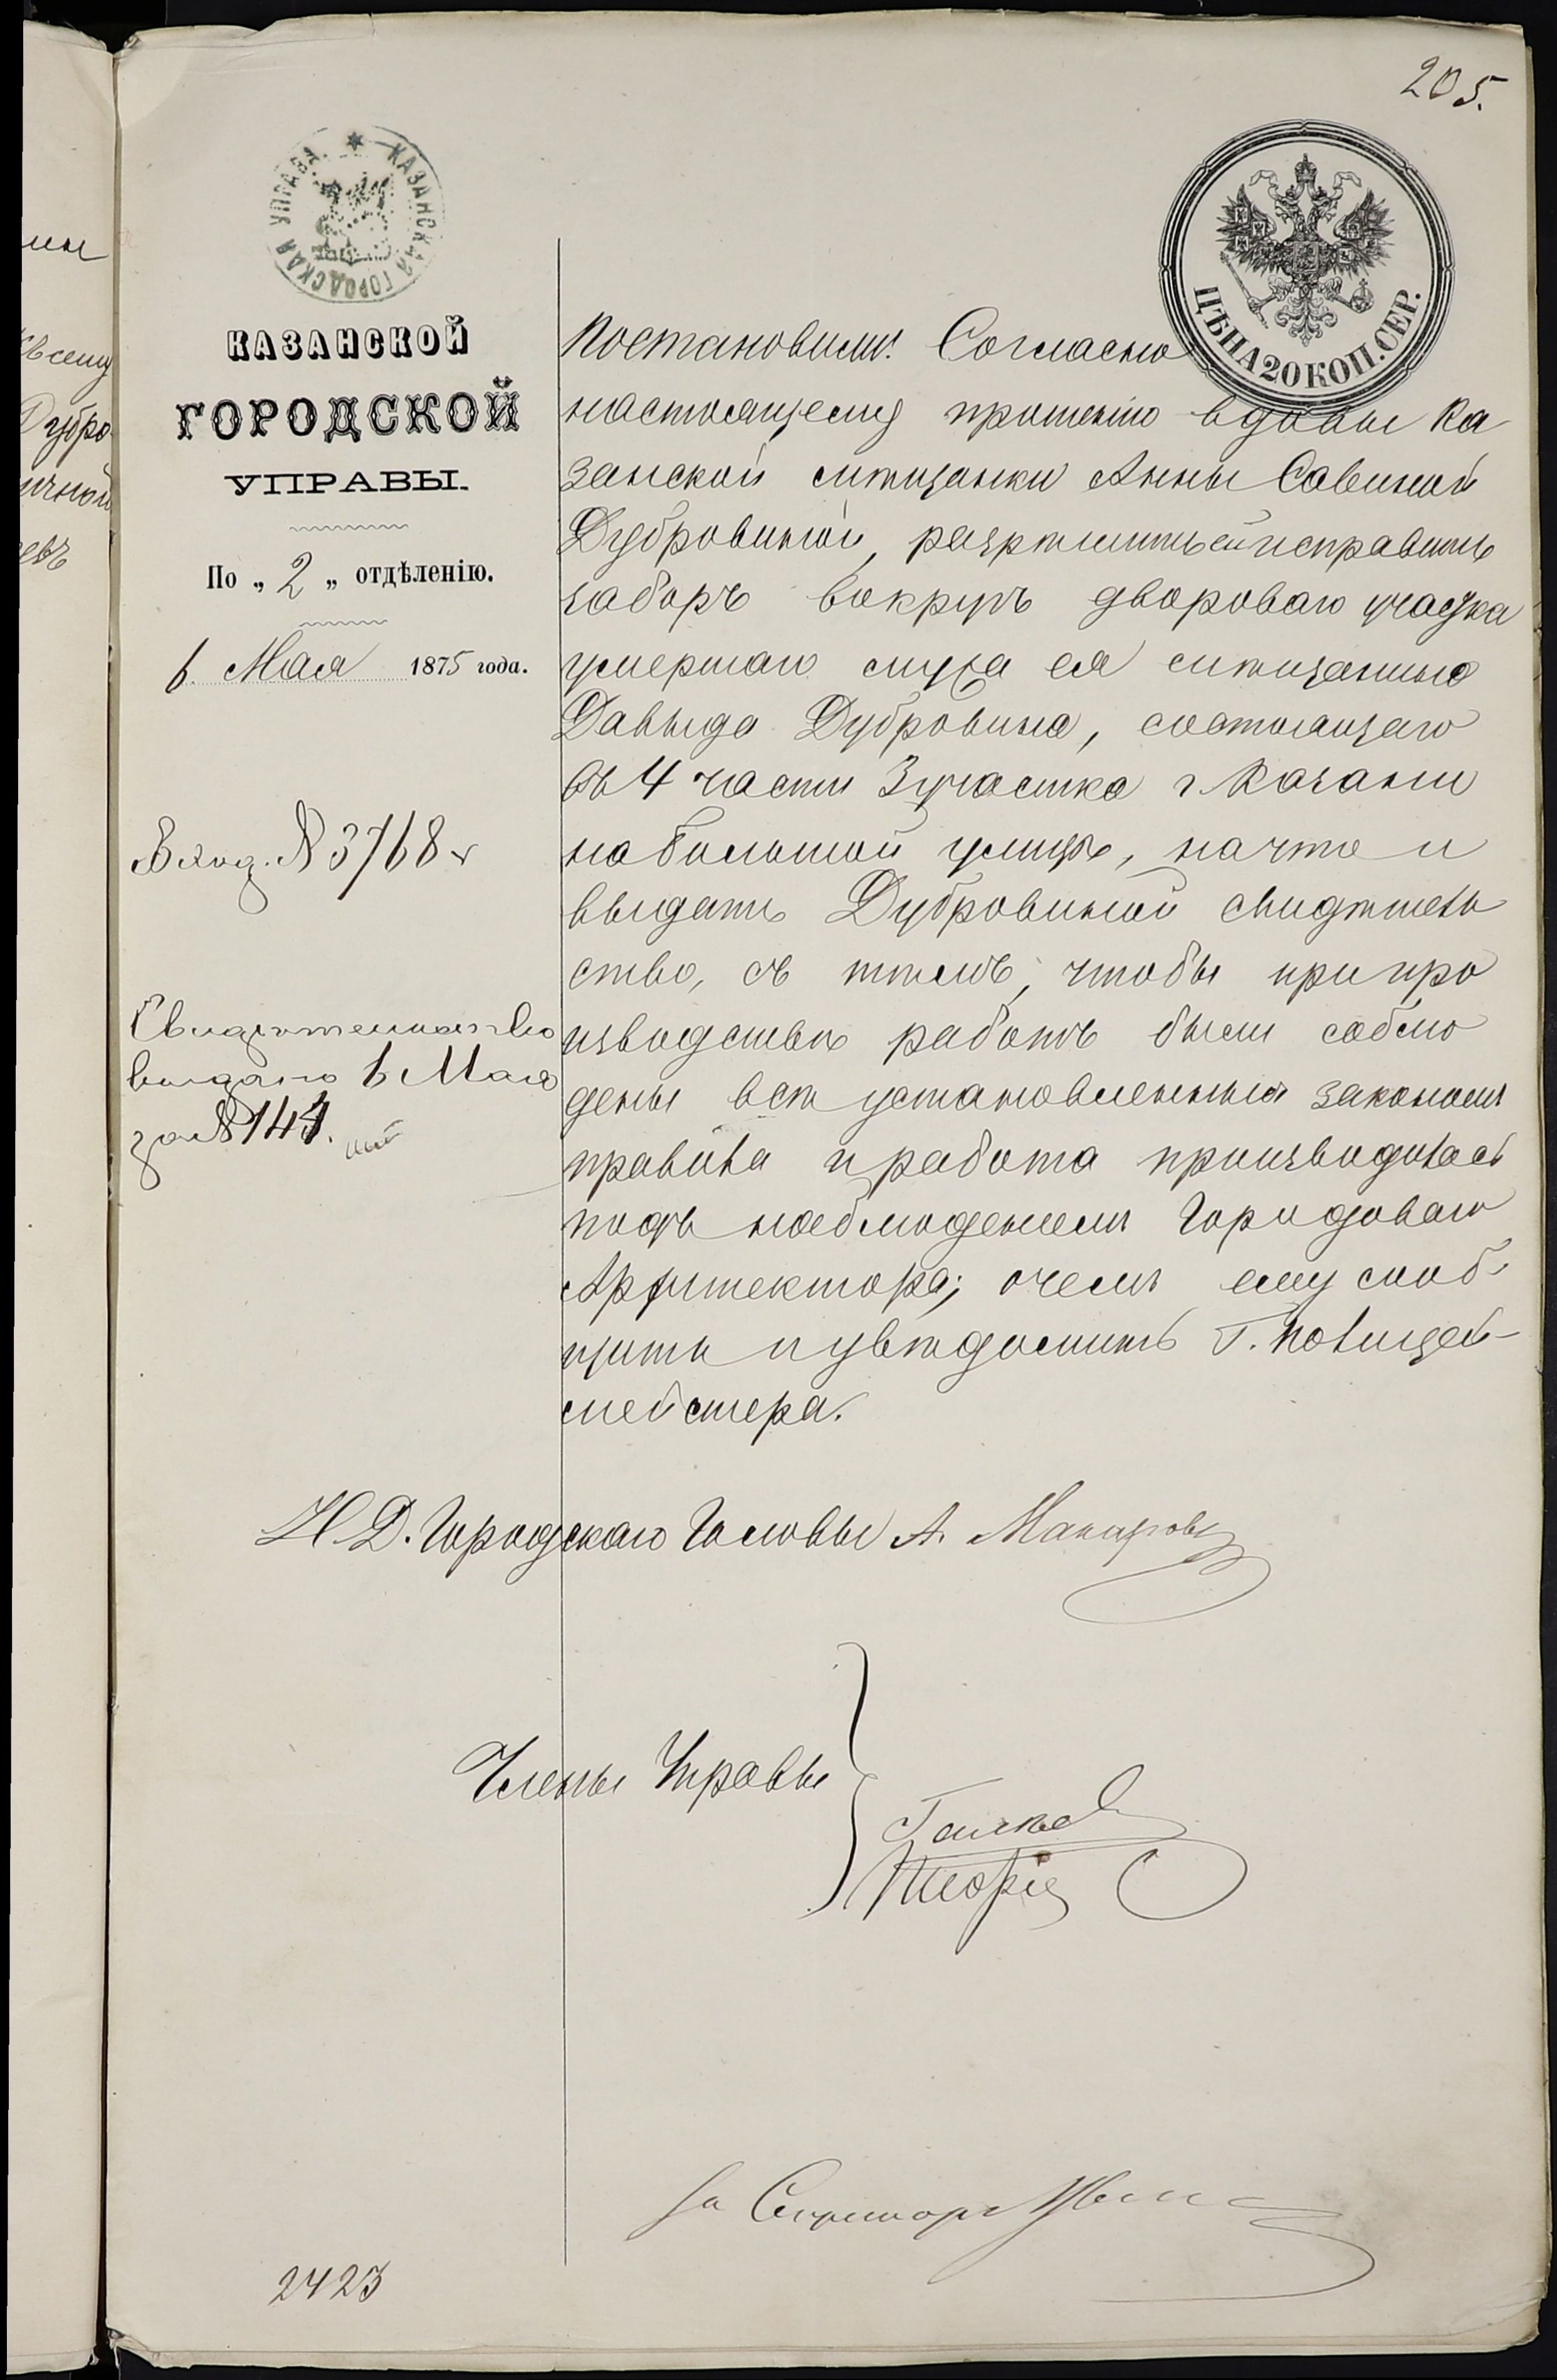 205.
КАЗАНСКАЯ ГОРОДСКАЯ УПРАВА
ЦѢНА 20 КОП. СЕР.
КАЗАНСКОЙ
ГОРОДСКОЙ
УПРАВЫ.
По „ 2 „ отдѣленію.
6 Мая 1875 года.
Вход. № 3768
Свидѣтельство
выдано 6 Мая
за № 144.
Постановили: Согласно
настоящему прошенію вдовы Ка
занской мѣщанки Анны Савиной
Дубровиной, разрѣшить ей исправить
заборъ вокругъ двороваго участка
умершаго мужа ея мѣщанина
Давыда Дубровина, состоящаго
въ 4 части 3 участка г. Казани
на большой улицѣ, на что и
выдать Дубровиной свидѣтель
ство, съ тѣмъ, чтобы при про
изводствѣ работъ были соблю
дены всѣ установленныя закономъ
правила и работа производилась
подъ наблюденіемъ Городоваго
Архитектора; о чемъ ему сооб-
щить и увѣдомить Г. Полицей-
мейстера.
И. Д. Городскаго Головы А.
Члены Управы
За Секретаря
2423
ны
Дубро
ичной
евъ